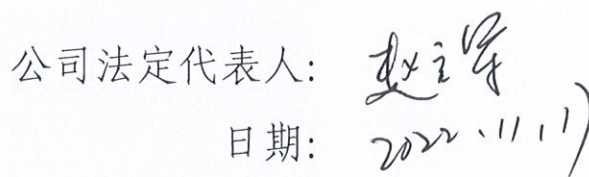 公司法定代表人: 赵立军
日期: 2022.11.17